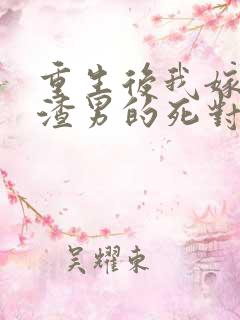 重生後我嫁
渣男的死對
吴耀東